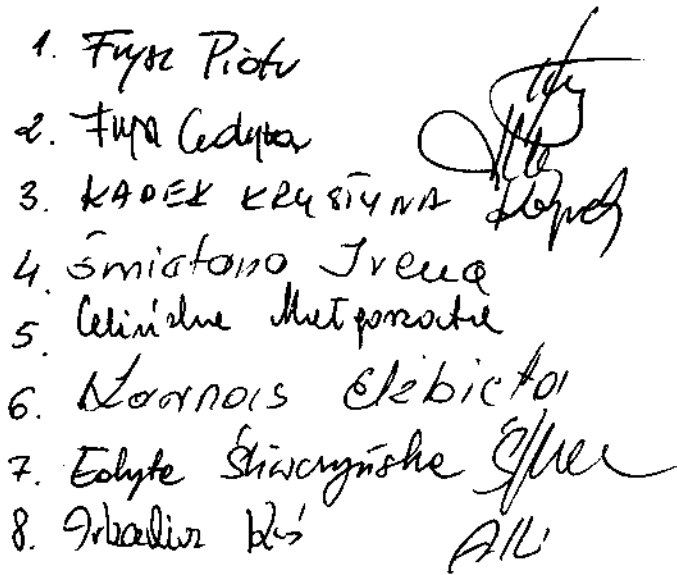 1. Fryc Piotr
2. Fryc Edyta
3. KADEK KRYSTYNA
4. Śmietana Irena
5. Celińska Małgorzata
6. Karnas Elżbieta
7. Edyta Śliwczyńska
8. Arkadiusz Kuś